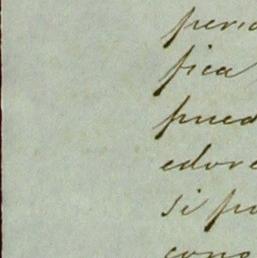 perio
fica
pued
edore
si pu
cons